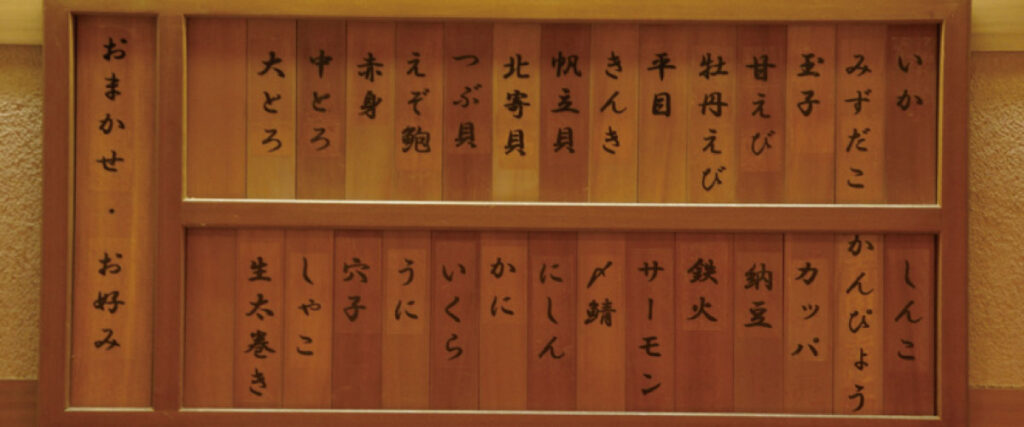 いか
みずだこ
玉子
甘えび
牡丹えび
平目
きんき
帆立貝
北寄貝
つぶ貝
えぞ鮑
赤身
中とろ
大とろ
しんこ
かんぴょう
カッパ
納豆
鉄火
サーモン
〆鯖
にしん
かに
いくら
うに
穴子
しゃこ
生太巻き
おまかせ・お好み